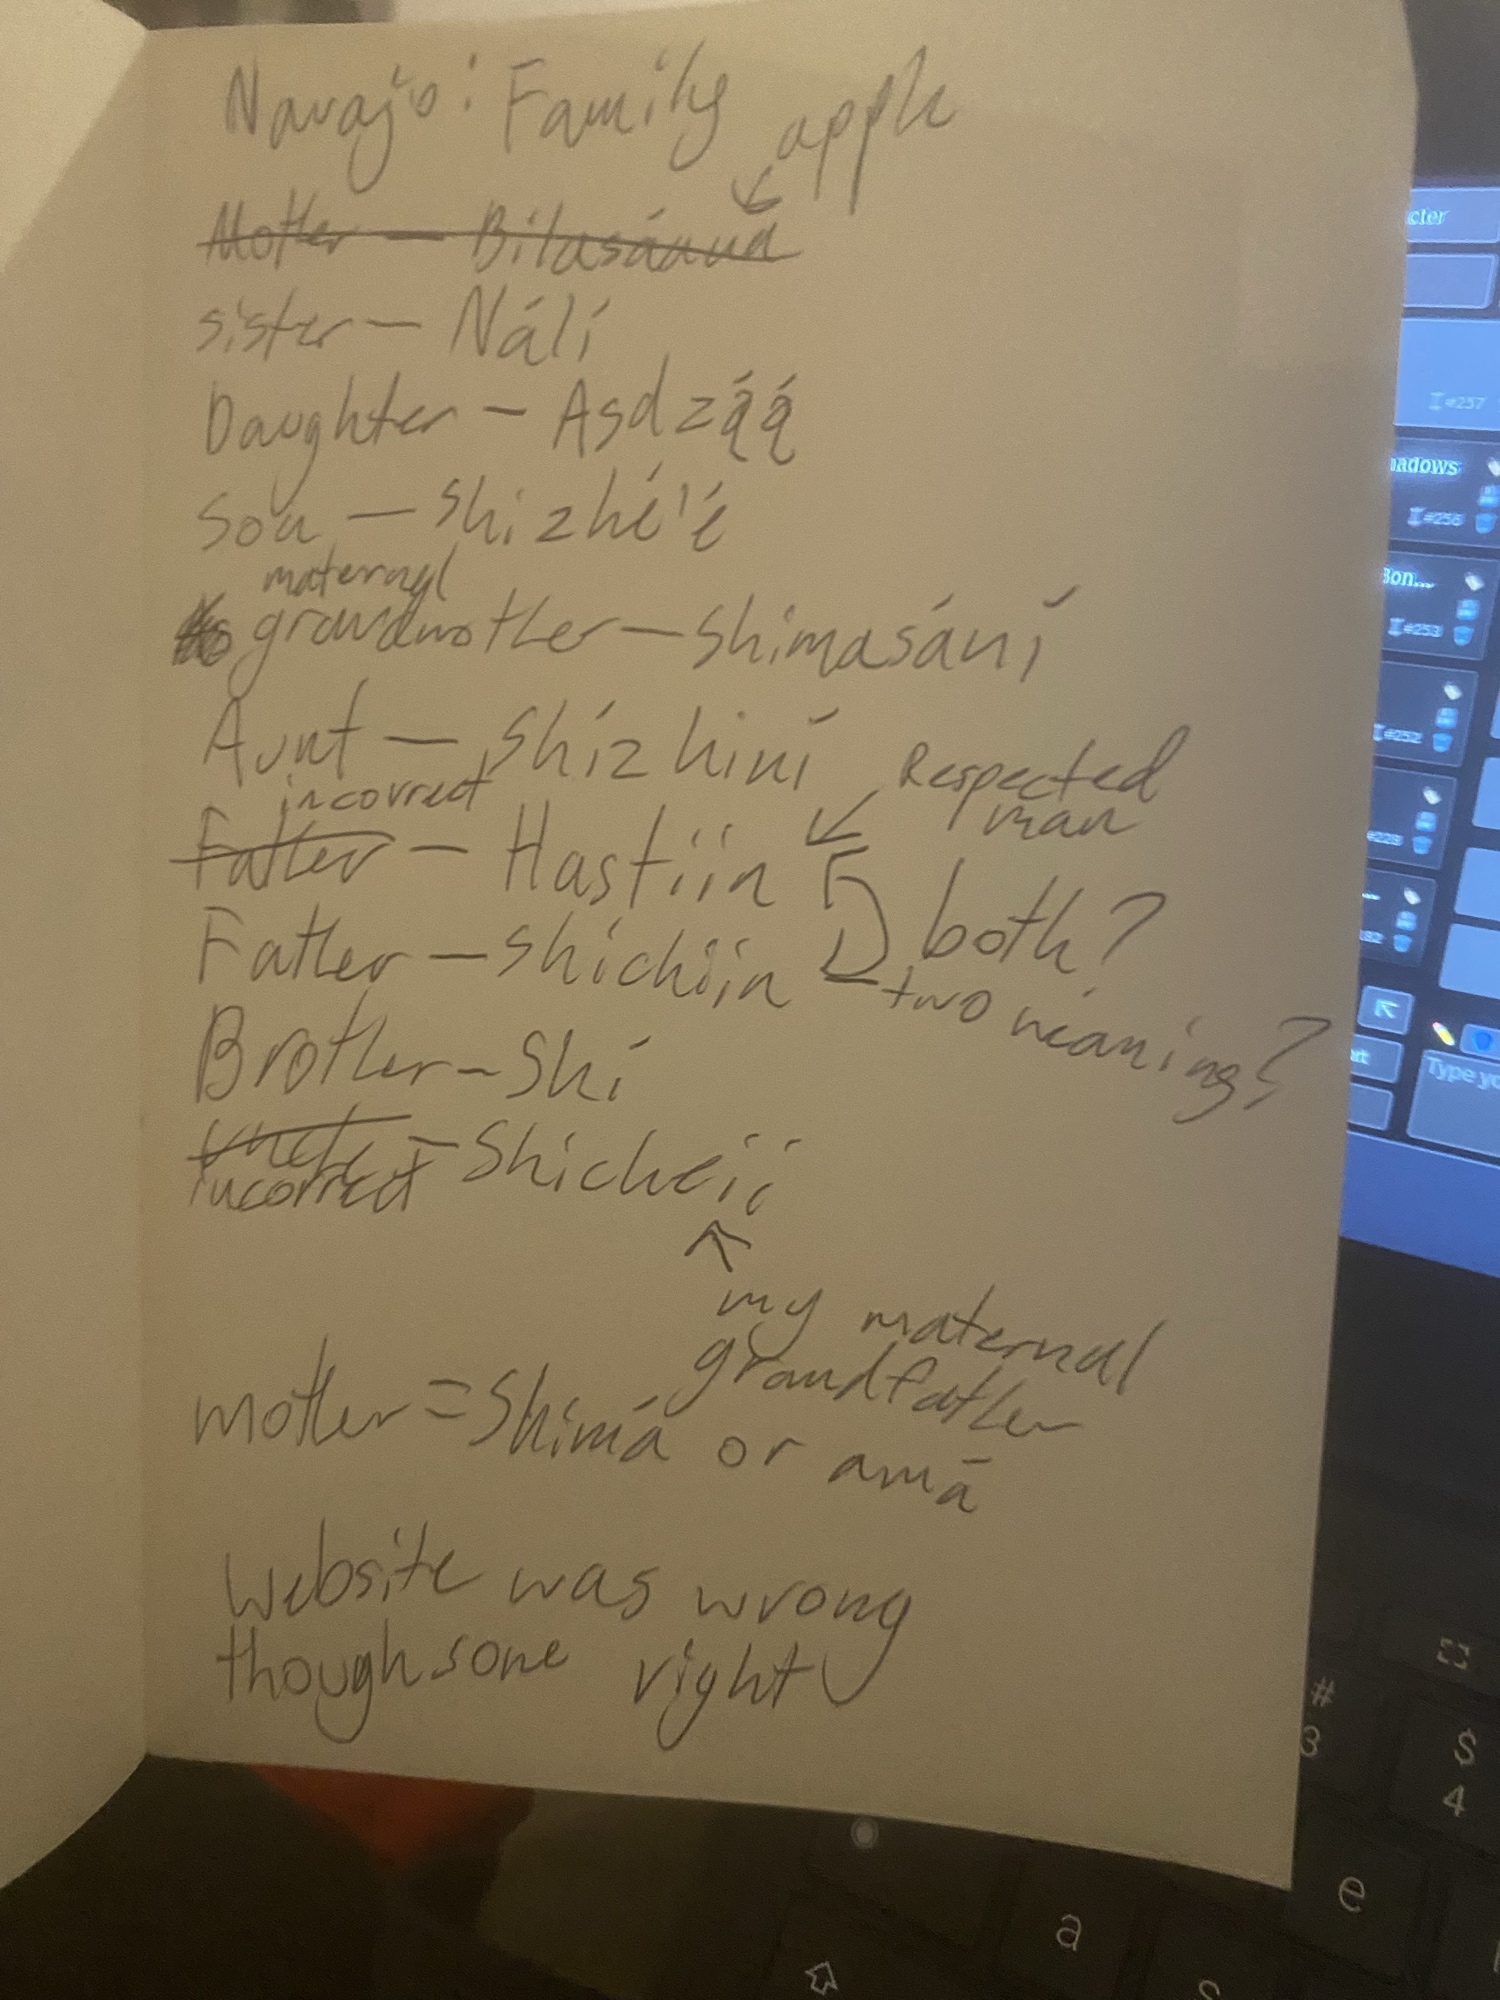 Navajo: Family
apple
Mother — Bilasáana
sister — Nálí
Daughter — Asdzą́ą́
Son — Shizhé'é
maternal
grandmother — Shimasání
Aunt — Shízhiní
Respected
man
incorrect
Father — Hastiin
both?
Father — Shichiin
two meanings?
Brother — Shí
Uncle — Shicheii
incorrect
my maternal
grandfather
mother = Shimá or amá
Website was wrong
though some right
cter
#257
hadows
#256
Bon...
#253
#252
#228
Type yo
#
3
$
4
e
a
s